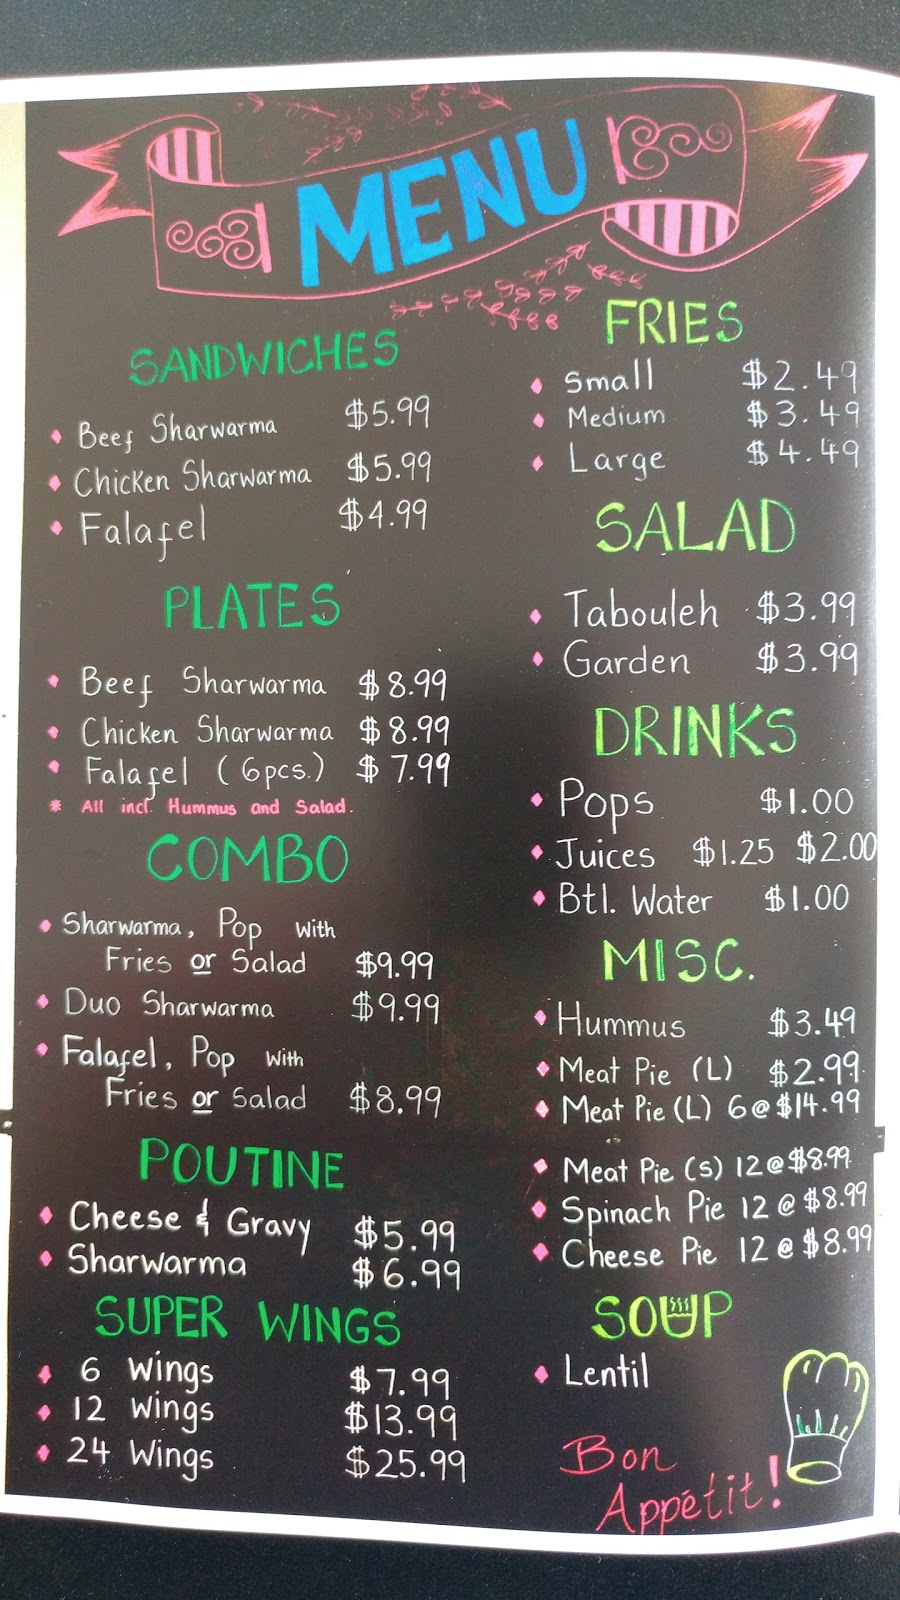 MENU
SANDWICHES
Beef Sharwarma $5.99
Chicken Sharwarma $5.99
Falafel $4.99
PLATES
Beef Sharwarma $8.99
Chicken Sharwarma $8.99
Falafel (6pcs.) $7.99
* All incl. Hummus and Salad.
COMBO
Sharwarma, Pop with
Fries or Salad $9.99
Duo Sharwarma $9.99
Falafel, Pop with
Fries or Salad $8.99
POUTINE
Cheese & Gravy $5.99
Sharwarma $6.99
SUPER WINGS
6 Wings $7.99
12 Wings $13.99
24 Wings $25.99
FRIES
Small $2.49
Medium $3.49
Large $4.49
SALAD
Tabouleh $3.99
Garden $3.99
DRINKS
Pops $1.00
Juices $1.25 $2.00
Btl. Water $1.00
MISC.
Hummus $3.49
Meat Pie (L) $2.99
Meat Pie (L) 6@$14.99
Meat Pie (s) 12@$8.99
Spinach Pie 12@$8.99
Cheese Pie 12@$8.99
SOUP
Lentil
Bon
Appétit!